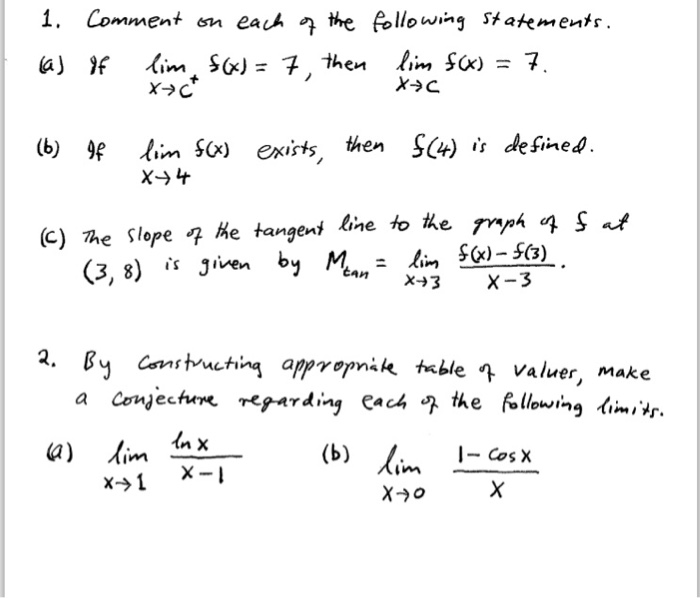 1. Comment on each of the following statements.
(a) If lim x→c⁺ f(x) = 7, then lim x→c f(x) = 7.
(b) If lim x→4 f(x) exists, then f(4) is defined.
(c) The slope of the tangent line to the graph of f at
(3, 8) is given by Mtan = lim x→3 f(x) – f(3) / x – 3 .
2. By constructing appropriate table of values, make
a conjecture regarding each of the following limits.
(a) lim x→1 ln x / x – 1 (b) lim x→0 1 – cos x / x